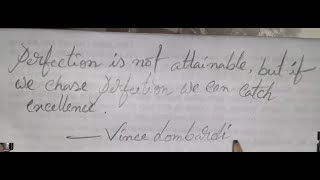 Perfection is not attainable, but if
we chase perfection we can catch
excellence.
— Vince Lombardi